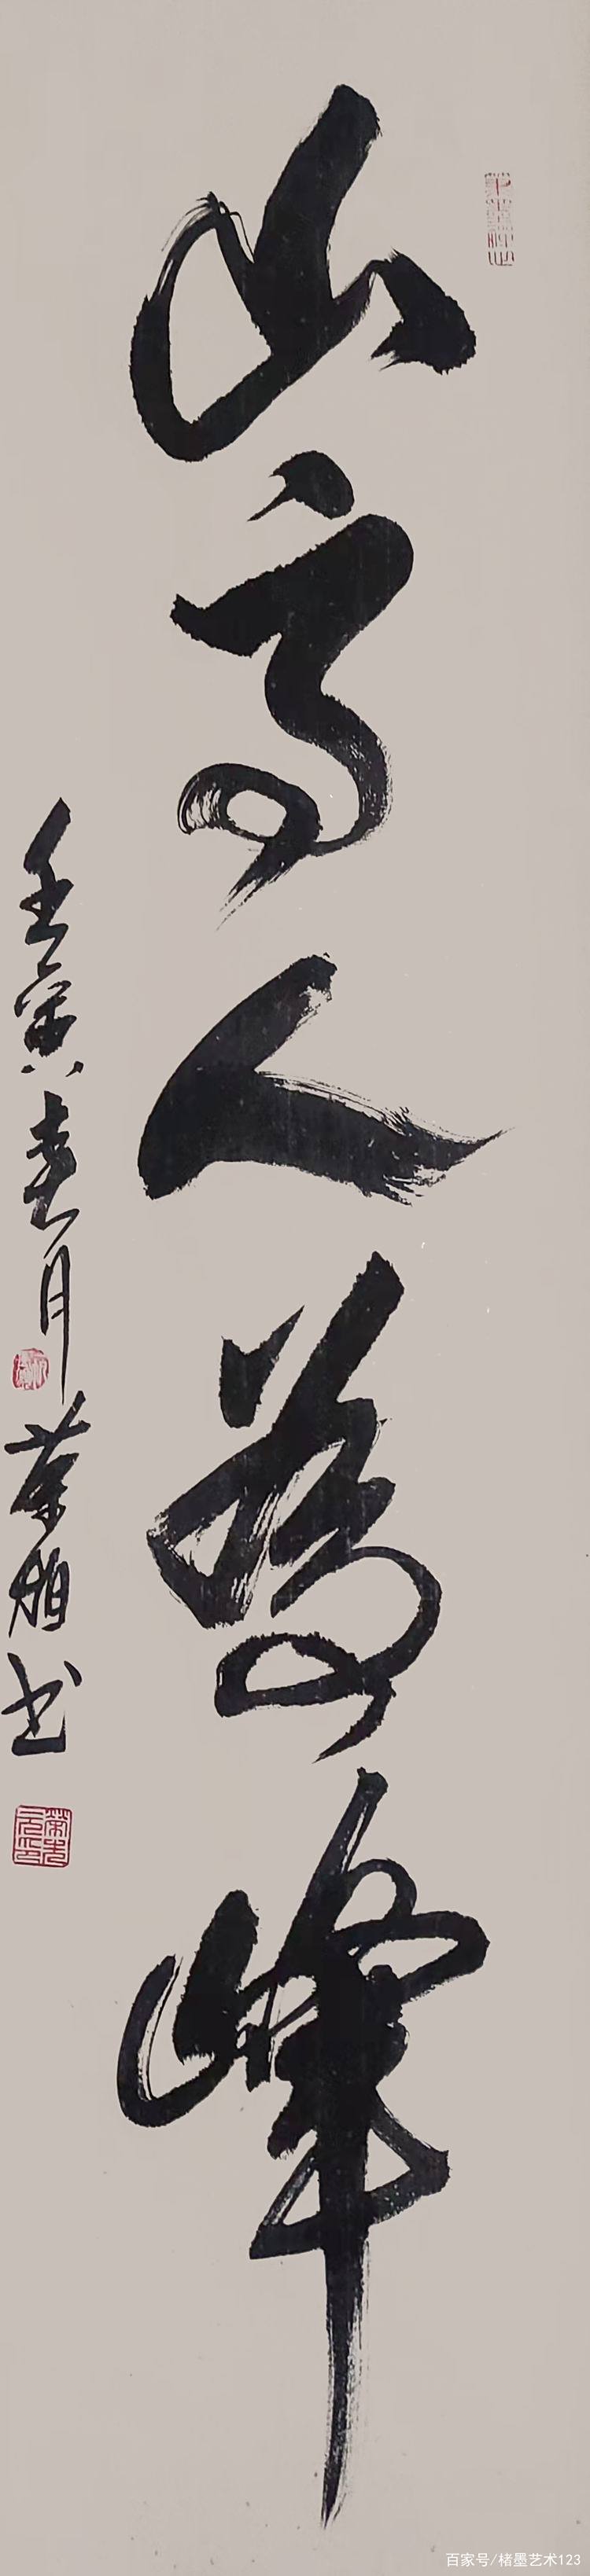 山高人為峰
壬寅春月
荣相书
百家号/楮墨艺术123